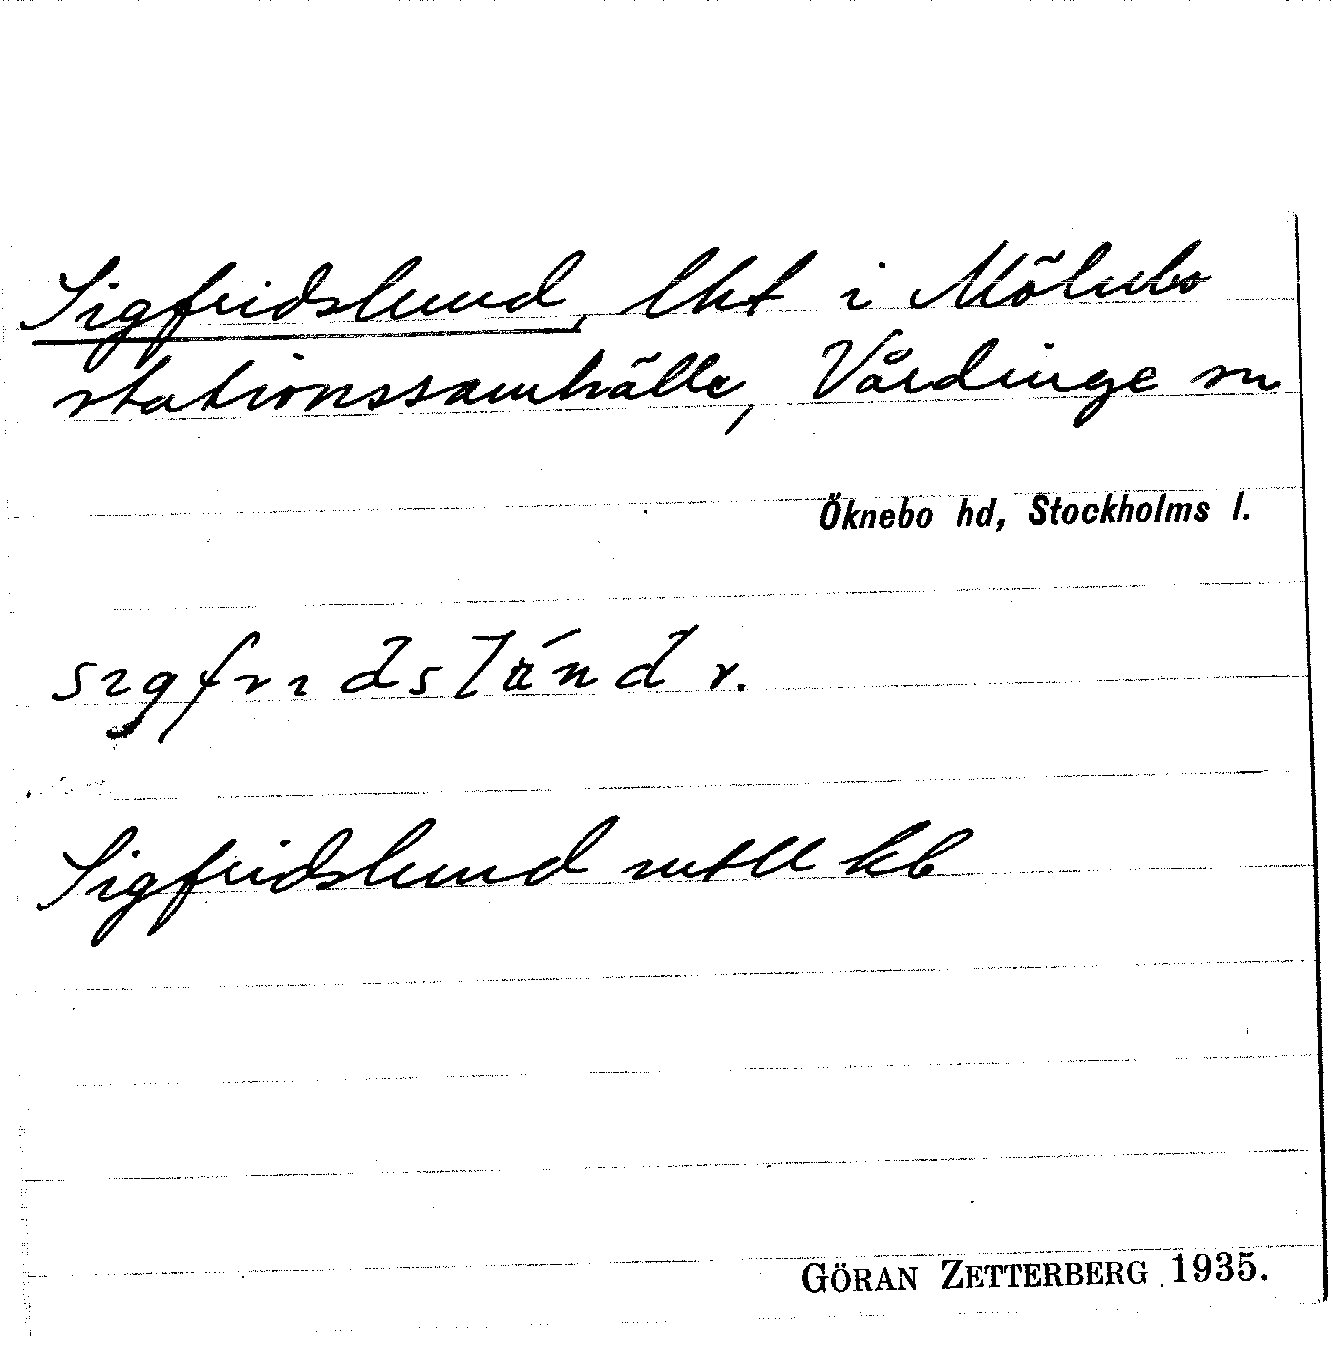 Sigfridslund, lht i Mölnbo
stationssamhälle, Vårdinge sn
Öknebo hd, Stockholms l.
sigfridslúnd r.
Sigfridslund mtll kb
GÖRAN ZETTERBERG 1935.